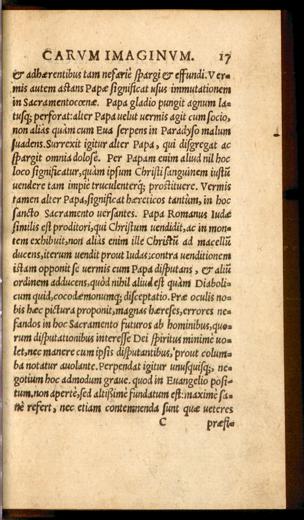 CARVM IMAGINVM. 17
& adhærentibus tam nefariè spargi & effundi. Ver-
mis autem astans Papæ significat usus immutationem
in Sacramento cœnæ. Papa gladio pungit agnum la-
tusq; perforat: alter Papa uelut uermis agit cum socio,
non aliàs quàm cum Eua serpens in Paradyso malum
suadens. Surrexit igitur alter Papa, qui disgregat ac
spargit omnia dolosè. Per Papam enim aliud nil hoc
loco significatur, quàm ipsum Christi sanguinem iustũ
uendere tam impiè truculenterq; prostituere. Vermis
tamen alter Papa, significat hæreticos tantùm, in hoc
sancto Sacramento uersantes. Papa Romanus Iudæ
similis est proditori, qui Christum uendidit, ac in mon-
tem exhibuit, non aliàs enim ille Christũ ad macellũ
ducens, iterum uendit prout Iudas: contra uenditionem
istam opponit se uermis cum Papa disputans, & aliũ
ordinem adducens, quòd nihil aliud est quàm Diaboli-
cum quid, cocodæmonumq; disceptatio. Præ oculis no-
bis hæc pictura proponit, magnas hæreses, errores ne-
fandos in hoc Sacramento futuros ab hominibus, quo-
rum disputationibus interesse Dei spiritus minimè uo-
let, nec manere cum ipsis disputantibus, prout colum-
ba notatur auolante. Perpendat igitur unusquisq;, ne-
gotium hoc admodum graue, quod in Euangelio posi-
tum, non apertè, sed altißimè fundatum est: maximè sa-
nè refert, nec etiam contemnenda sunt quæ ueteres
C præsi-